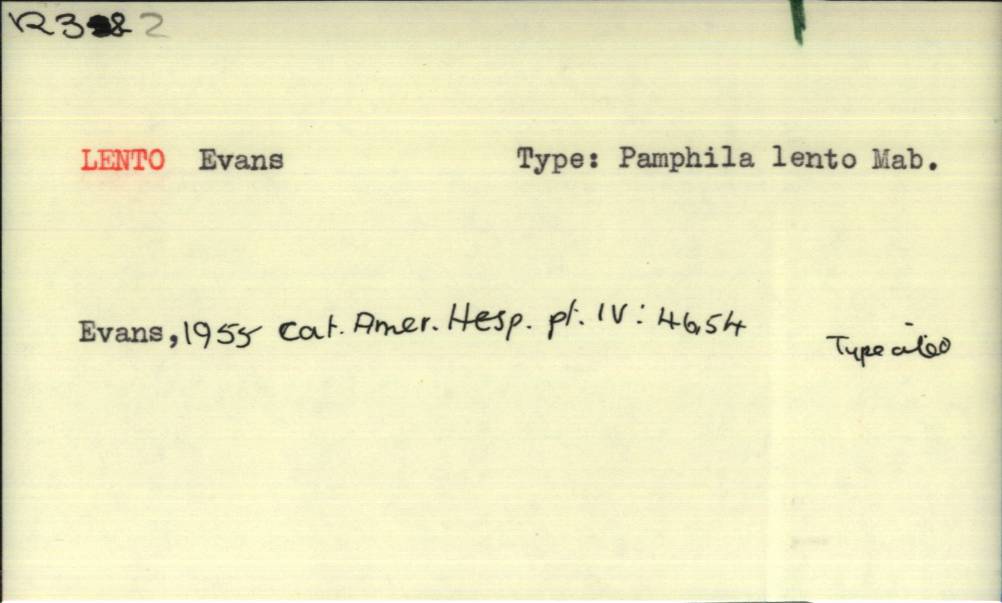 LENTO Evans Type: Pamphila lento Mab.
Evans, 1955 Cat. Amer. Hesp. pt. IV: 46,54
Type